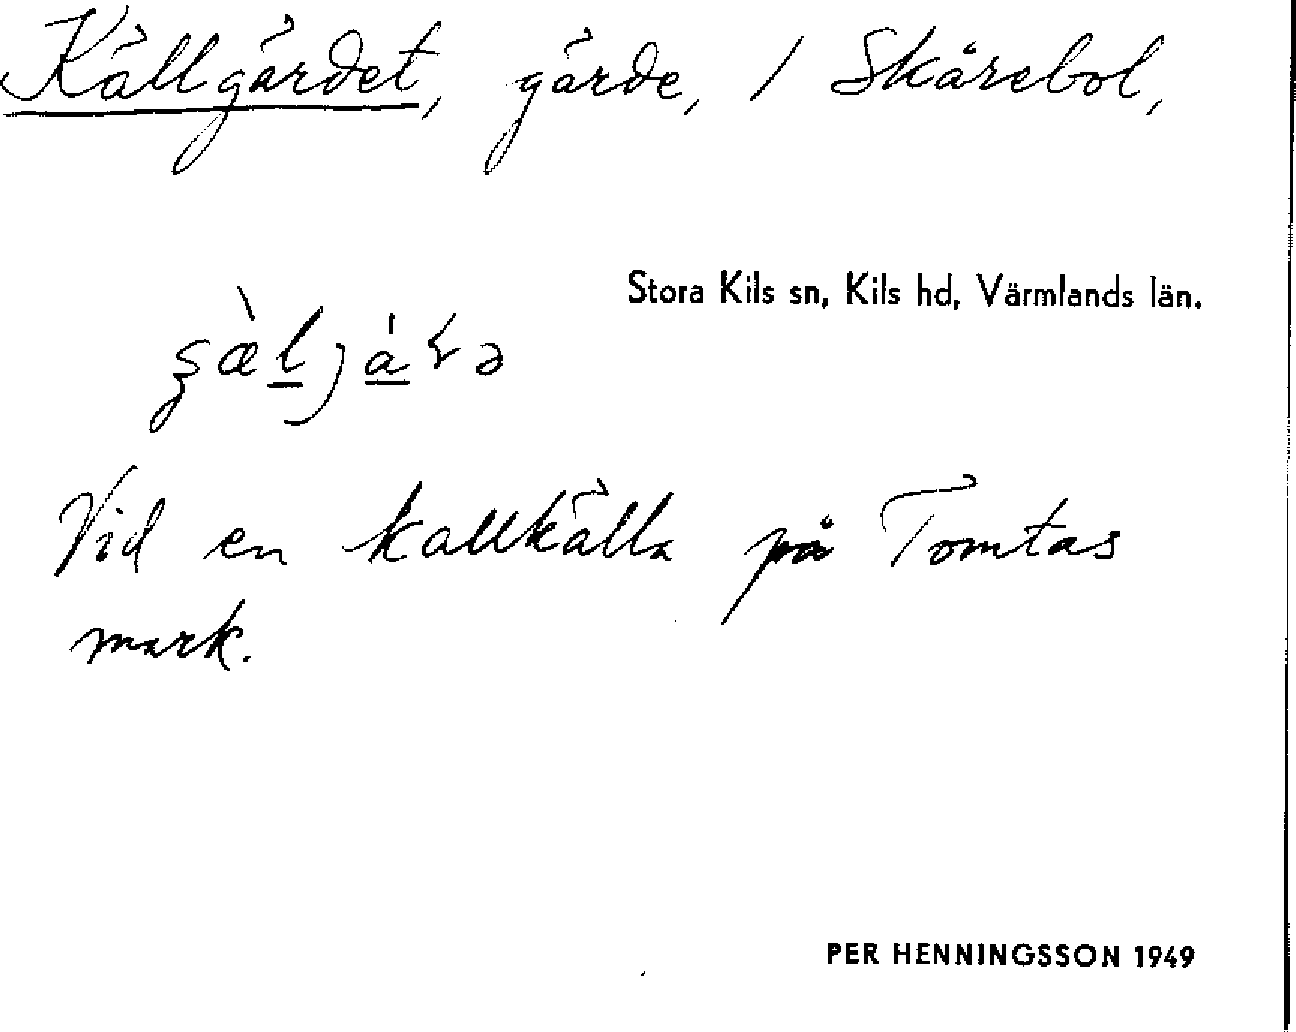 Källgärdet, gärde, / Skårebol,
Stora Kils sn, Kils hd, Värmlands län.
Vid en kallkälla på Tomtas
mark.
PER HENNINGSSON 1949